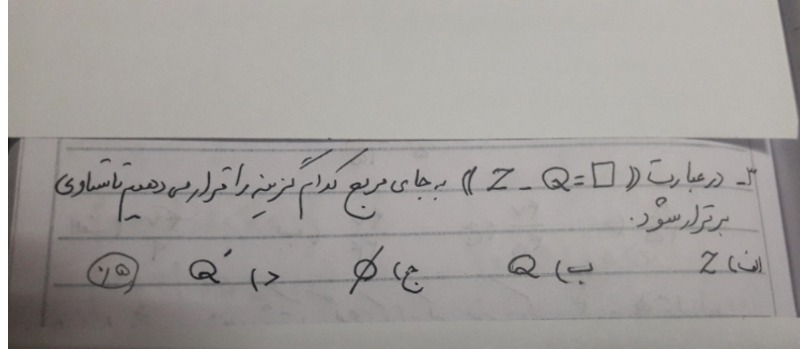 ۳- در عبارت (( Z - Q = □ )) به جای مربع کدام گزینه را قرار می دهیم تا تساوی
برقرار شود.
الف) Z ب) Q ج) ∅ د) Q′ ۰/۵